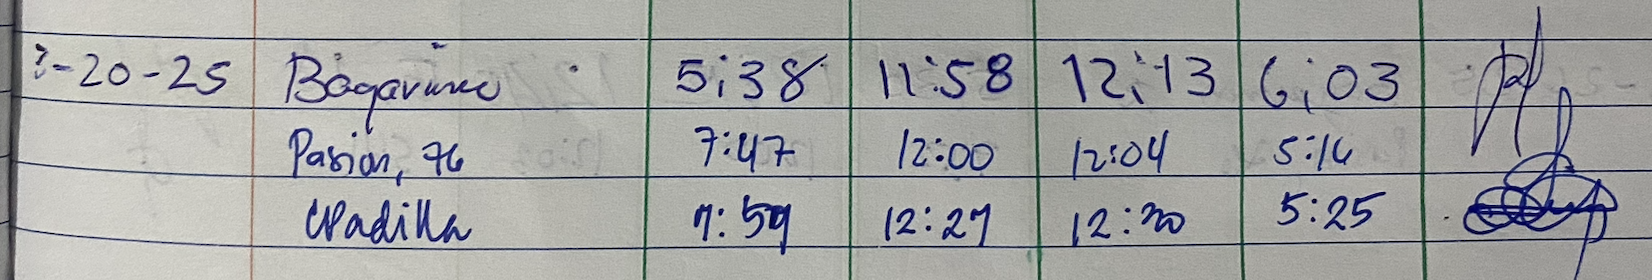 -20-25 Bagarino 5:38 11:58 12:13 6:03
Pasion, 7:47 12:00 12:04 5:16
Padilla 7:59 12:27 12:30 5:25